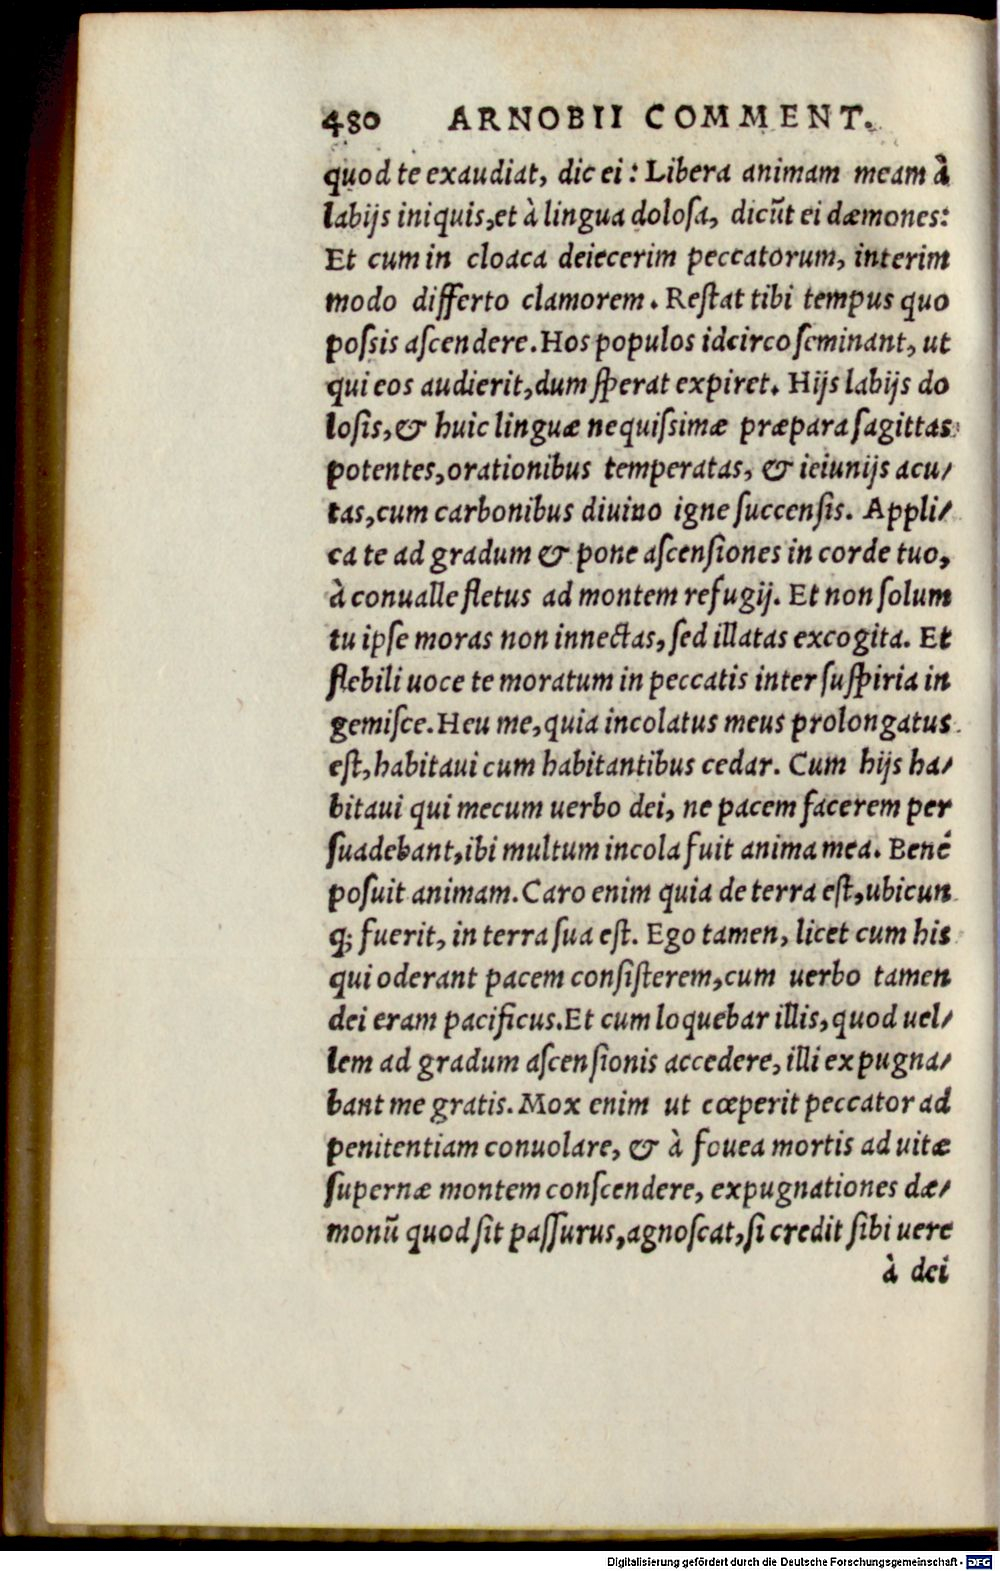 480 ARNOBII COMMENT.
quod te exaudiat, dic ei: Libera animam meam à
labijs iniquis, et à lingua dolosa, dicũt ei dæmones:
Et cum in cloaca deiecerim peccatorum, interim
modo differto clamorem. Restat tibi tempus quo
possis ascendere. Hos populos idcirco seminant, ut
qui eos audierit, dum sperat expiret. Hijs labijs do
losis, & huic linguæ nequissimæ præpara sagittas
potentes, orationibus temperatas, & ieiunijs acu/
tas, cum carbonibus diuino igne succensis. Appli/
ca te ad gradum & pone ascensiones in corde tuo,
à conualle fletus ad montem refugij. Et non solum
tu ipse moras non innectas, sed illatas excogita. Et
flebili uoce te moratum in peccatis inter suspiria in
gemisce. Heu me, quia incolatus meus prolongatus
est, habitaui cum habitantibus cedar. Cum hijs ha/
bitaui qui mecum uerbo dei, ne pacem facerem per
suadebant, ibi multum incola fuit anima mea. Bené
posuit animam. Caro enim quia de terra est, ubicun
q; fuerit, in terra sua est. Ego tamen, licet cum his
qui oderant pacem consisterem, cum uerbo tamen
dei eram pacificus. Et cum loquebar illis, quod uel/
lem ad gradum ascensionis accedere, illi expugna/
bant me gratis. Mox enim ut cœperit peccator ad
penitentiam conuolare, & à fouea mortis ad uitæ
supernæ montem conscendere, expugnationes dæ/
monũ quod sit passurus, agnoscat, si credit sibi uere
à dei
Digitalisierung gefördert durch die Deutsche Forschungsgemeinschaft - DFG